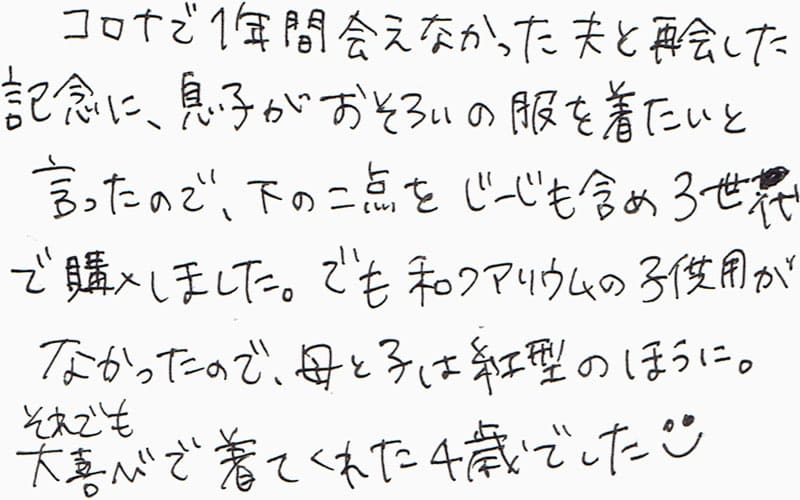 コロナで1年間会えなかった夫と再会した
記念に、息子がおそろいの服を着たいと
言ったので、下の二点をじーじも含め3世代
で購入しました。でも和クアリウムの子供用が
なかったので、母と子は紅型のほうに。
それでも
大喜びで着てくれた4歳でした